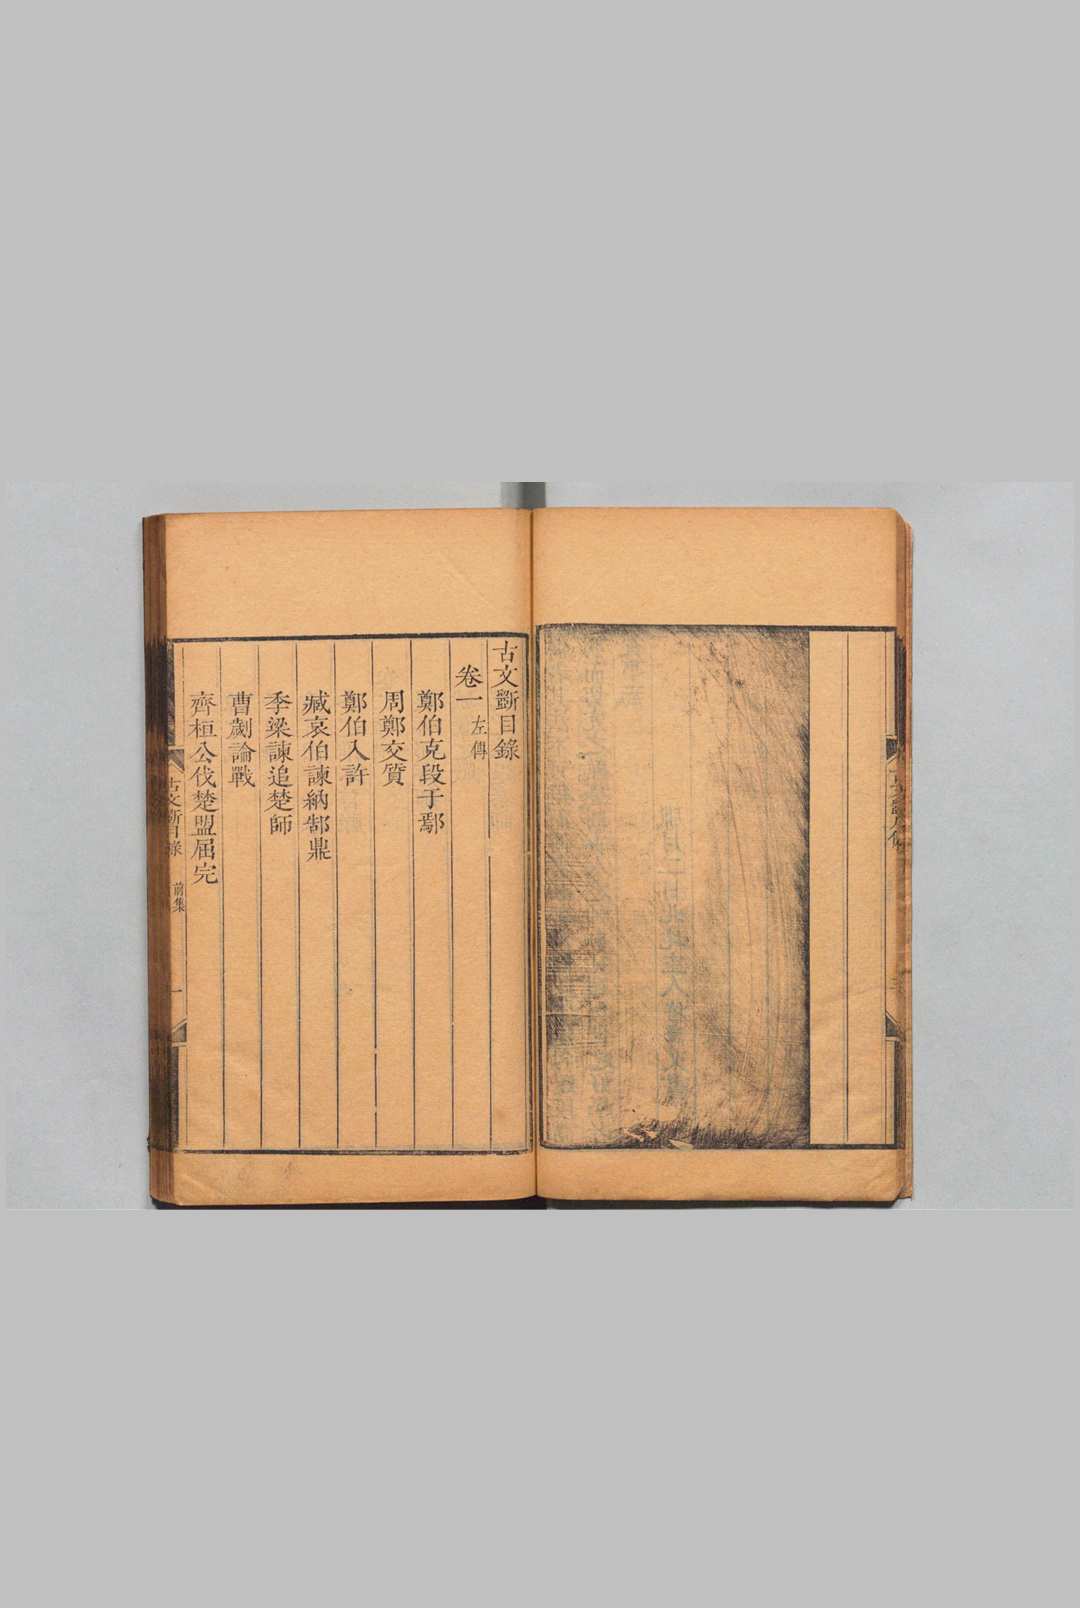 古文斷目錄
卷一 左傳
鄭伯克段于鄢
周鄭交質
鄭伯入許
臧哀伯諫納郜鼎
季梁諫追楚師
曹劌論戰
齊桓公伐楚盟屈完
古文斷目錄 前集 一